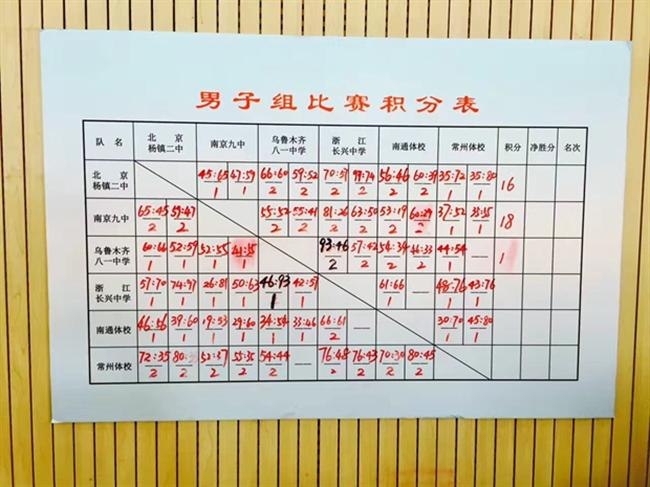 男子组比赛积分表
队 名 北 京 杨镇二中 南京九中 乌鲁木齐 八一中学 浙 江 长兴中学 南通体校 常州体校 积分 净胜分 名次
北 京 杨镇二中 45:65 47:59 66:60 59:52 70:57 97:74 56:46 60:39 35:72 35:80 16
1 1 2 2 2 2 2 2 1 1
南京九中 65:45 59:47 55:52 55:41 81:26 63:50 53:19 37:52 18
2 2 2 2 2 2 2 2 1 1
乌鲁木齐 八一中学 52:59 52:55 93:46 57:42 54:34 46:33 44:54
1 1 1 1 2 2 2 2 1
浙 江 长兴中学 57:70 74:97 26:81 50:63 46:93 42:57 61:66 — 48:76 43:76
1 1 1 1 1 1 1 1 1
南通体校 46:56 39:60 19:53 29:60 34:54 33:46 66:61 — 30:70 45:80
1 1 1 1 1 1 2 1 1
常州体校 72:35 52:37 54:44 — 76:48 76:43 70:30 80:45
2 2 2 2 2 2 2 2 2